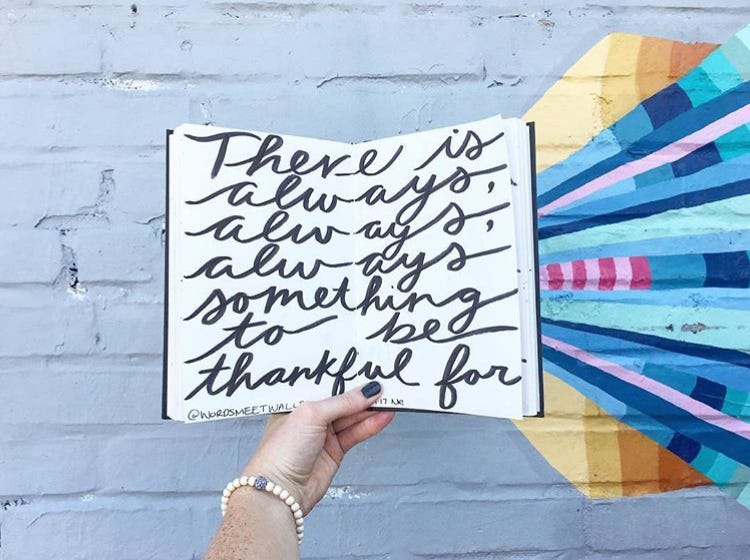 There is
always,
always,
always
something
to be
thankful for
@WORDSMEETWALL